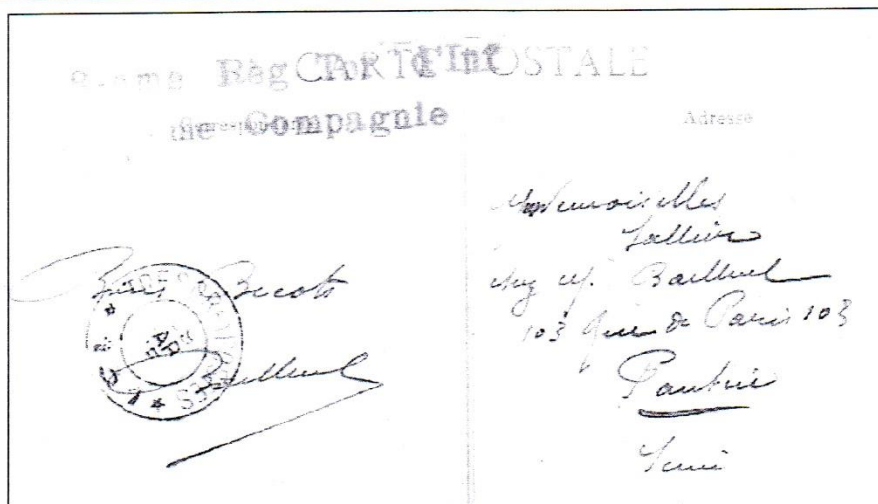 CARTE POSTALE
ème Rég Ter d'Inf
me Compagnie
Adresse
Bons Becots
Bailleul
Mesdemoiselles
chez M. Bailleul
103 de Paris 103
Pantin
Seine